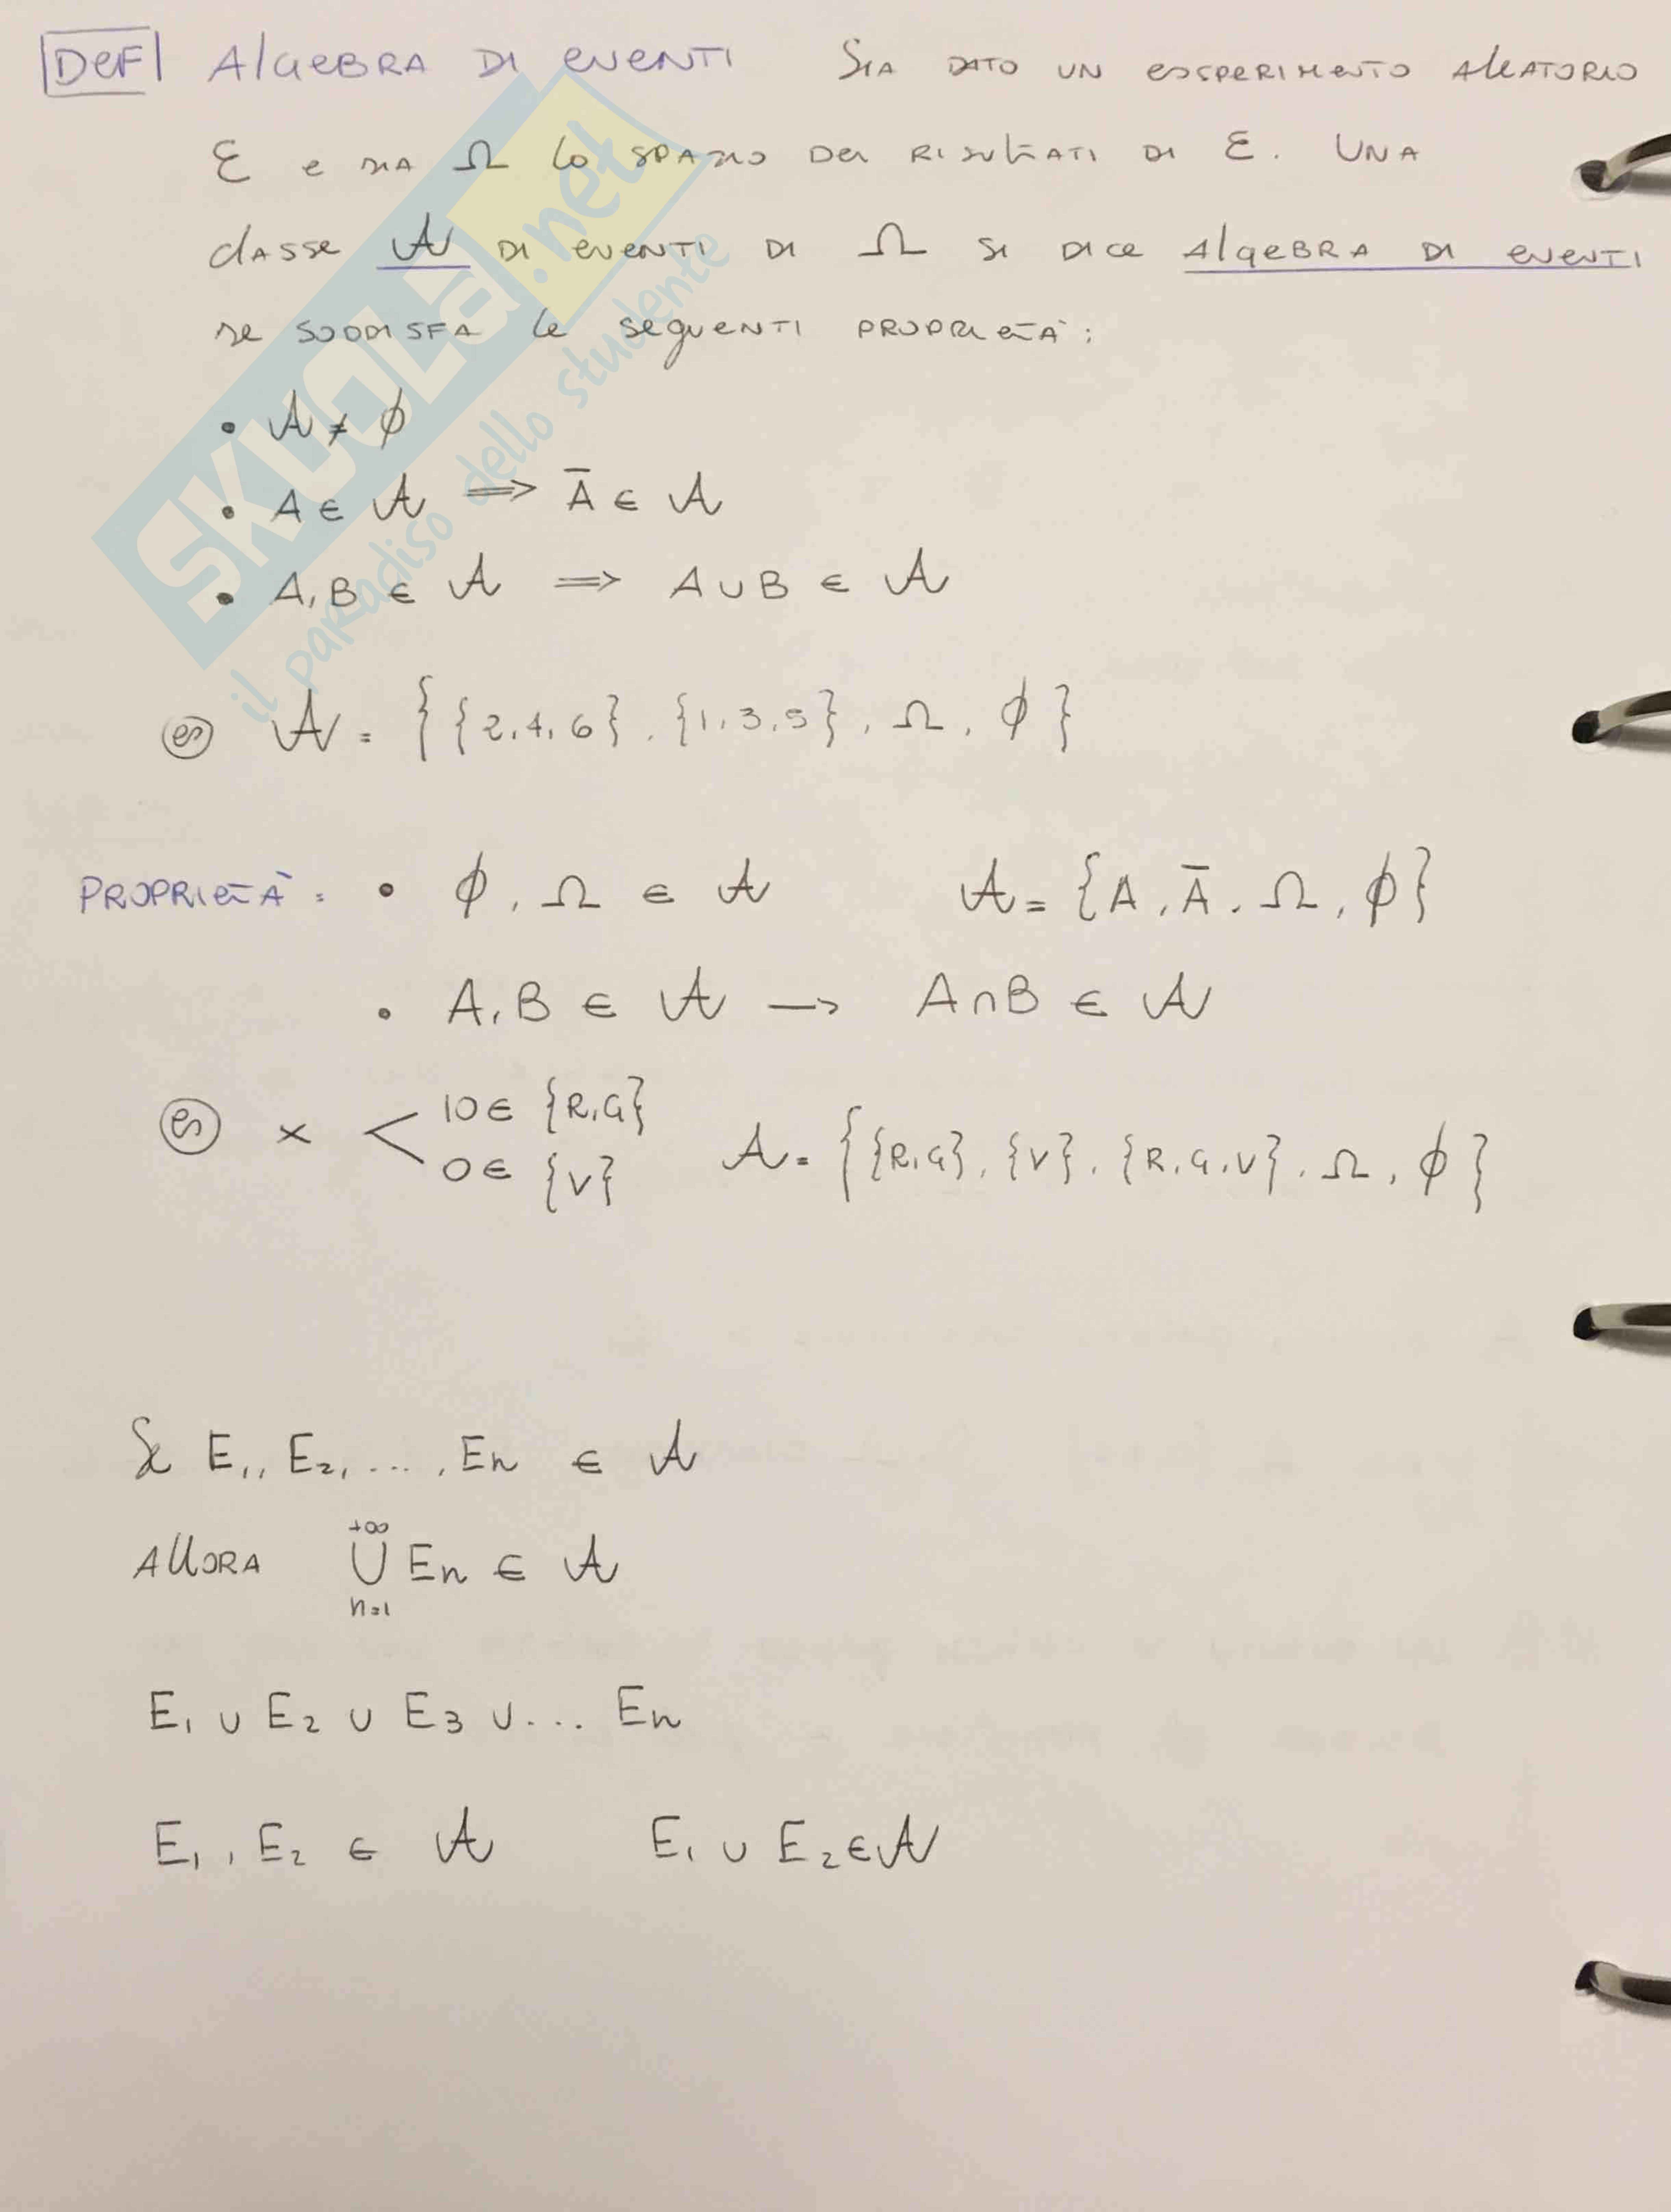 DEF ALGEBRA DI EVENTI SIA DATO UN ESPERIMENTO ALEATORIO
Ɛ E SIA Ω LO SPAZIO DEI RISULTATI DI Ɛ. UNA
CLASSE 𝒜 DI EVENTI DI Ω SI DICE ALGEBRA DI EVENTI
SE SODDISFA LE SEGUENTI PROPRIETÀ:
• 𝒜 ≠ ϕ
• A ∈ 𝒜 ⟹ Ā ∈ 𝒜
• A, B ∈ 𝒜 ⟹ A ∪ B ∈ 𝒜
es 𝒜 = { {2, 4, 6}, {1, 3, 5}, Ω, ϕ }
PROPRIETÀ: • ϕ, Ω ∈ 𝒜 𝒜 = {A, Ā, Ω, ϕ}
• A, B ∈ 𝒜 → A ∩ B ∈ 𝒜
es x < 10 ∈ {R, G}
0 ∈ {V}
𝒜 = { {R, G}, {V}, {R, G, V}, Ω, ϕ }
Se E₁, E₂, ..., En ∈ 𝒜
ALLORA +∞ ⋃ n=1 En ∈ 𝒜
E₁ ∪ E₂ ∪ E₃ ∪ ... En
E₁, E₂ ∈ 𝒜 E₁ ∪ E₂ ∈ 𝒜
SKUOLa.net
il paradiso dello studente